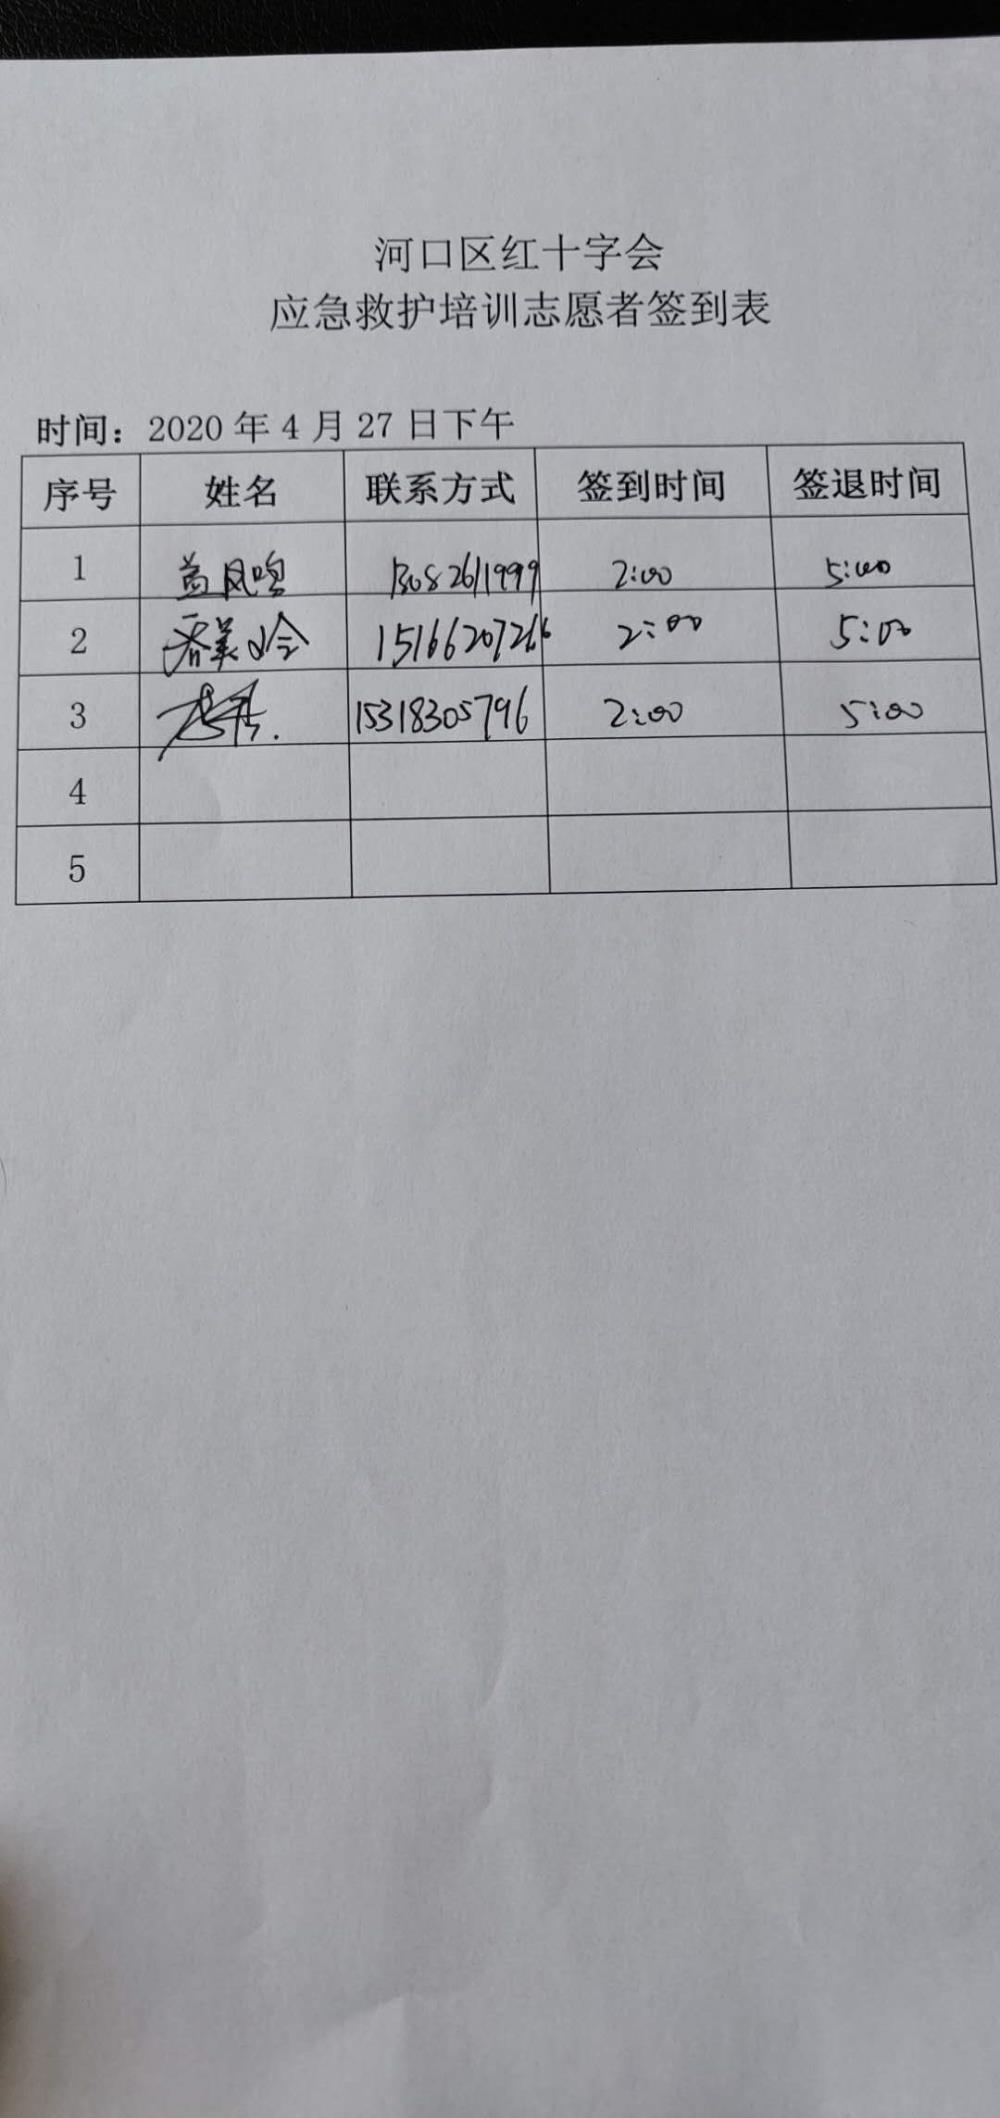 河口区红十字会
应急救护培训志愿者签到表
时间：2020 年 4 月 27 日下午
序号 姓名 联系方式 签到时间 签退时间
1 2:00 5:00
2 15166207266 2:00 5:00
3 15318305796 2:00 5:00
4
5